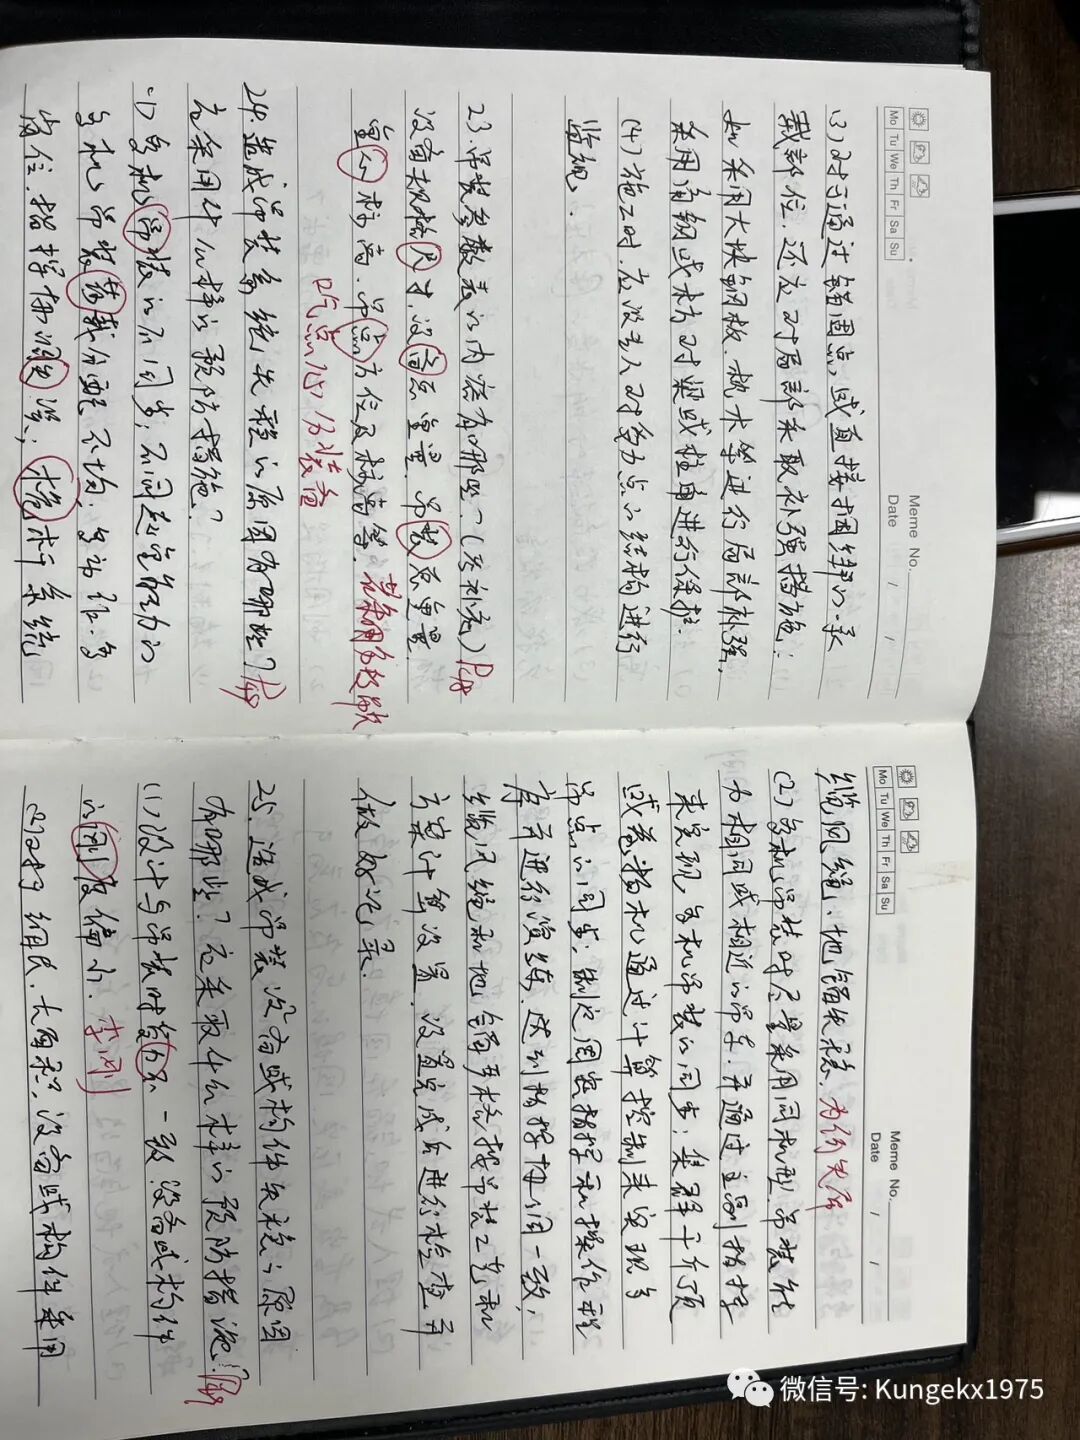 Meme No.
Mo Tu We Th Fr Sa Su
Date / /
(3)对于通过锚固点,或直接捆绑的承
载部位,还应对局部采取补强措施;
如采用大块钢板、枕木等进行局部补强,
采用角钢或木方对梁或柱角进行保护.
(4)施工时,应设专人对受力点的结构进行
监视.
23.吊装参数表的内容有哪些?(考补充)P48
设备规格尺寸,设备总重量,吊装总重量,
重心标高,吊点方位及标高等.若采用分段吊
吃点心分装备
24.造成吊装系统失稳的原因有哪些?P48
应采用什么样的预防措施?
(1)多机吊装的不同步;不同起重能力的
多机吊装荷载分配不均,多动作、多
岗位,指挥协调误;桅杆系统
Meme No.
Mo Tu We Th Fr Sa Su
Date / /
缆风绳、地锚失稳.为何失吊
(2)多机吊装时尽量采用同机型、吊装能
力相同或相近的吊车,并通过主副指挥
来实现多机吊装的同步;集群千斤顶
或卷扬机通过计算控制来实现多
吊点的同步;制定周密指挥和操作程
序并进行演练,达到指挥协调一致;
缆风绳和地锚严格按吊装工艺和
方案计算设置,设置完成后进行检查并
做好记录.
25.造成吊装设备或构件失稳的原因
有哪些?应采取什么样的预防措施?P48
(1)设计与吊装时受力不一致,设备或构件
的刚度偏小.李刚
(2)对于细长、大面积设备或构件采用
微信号: Kungekx1975